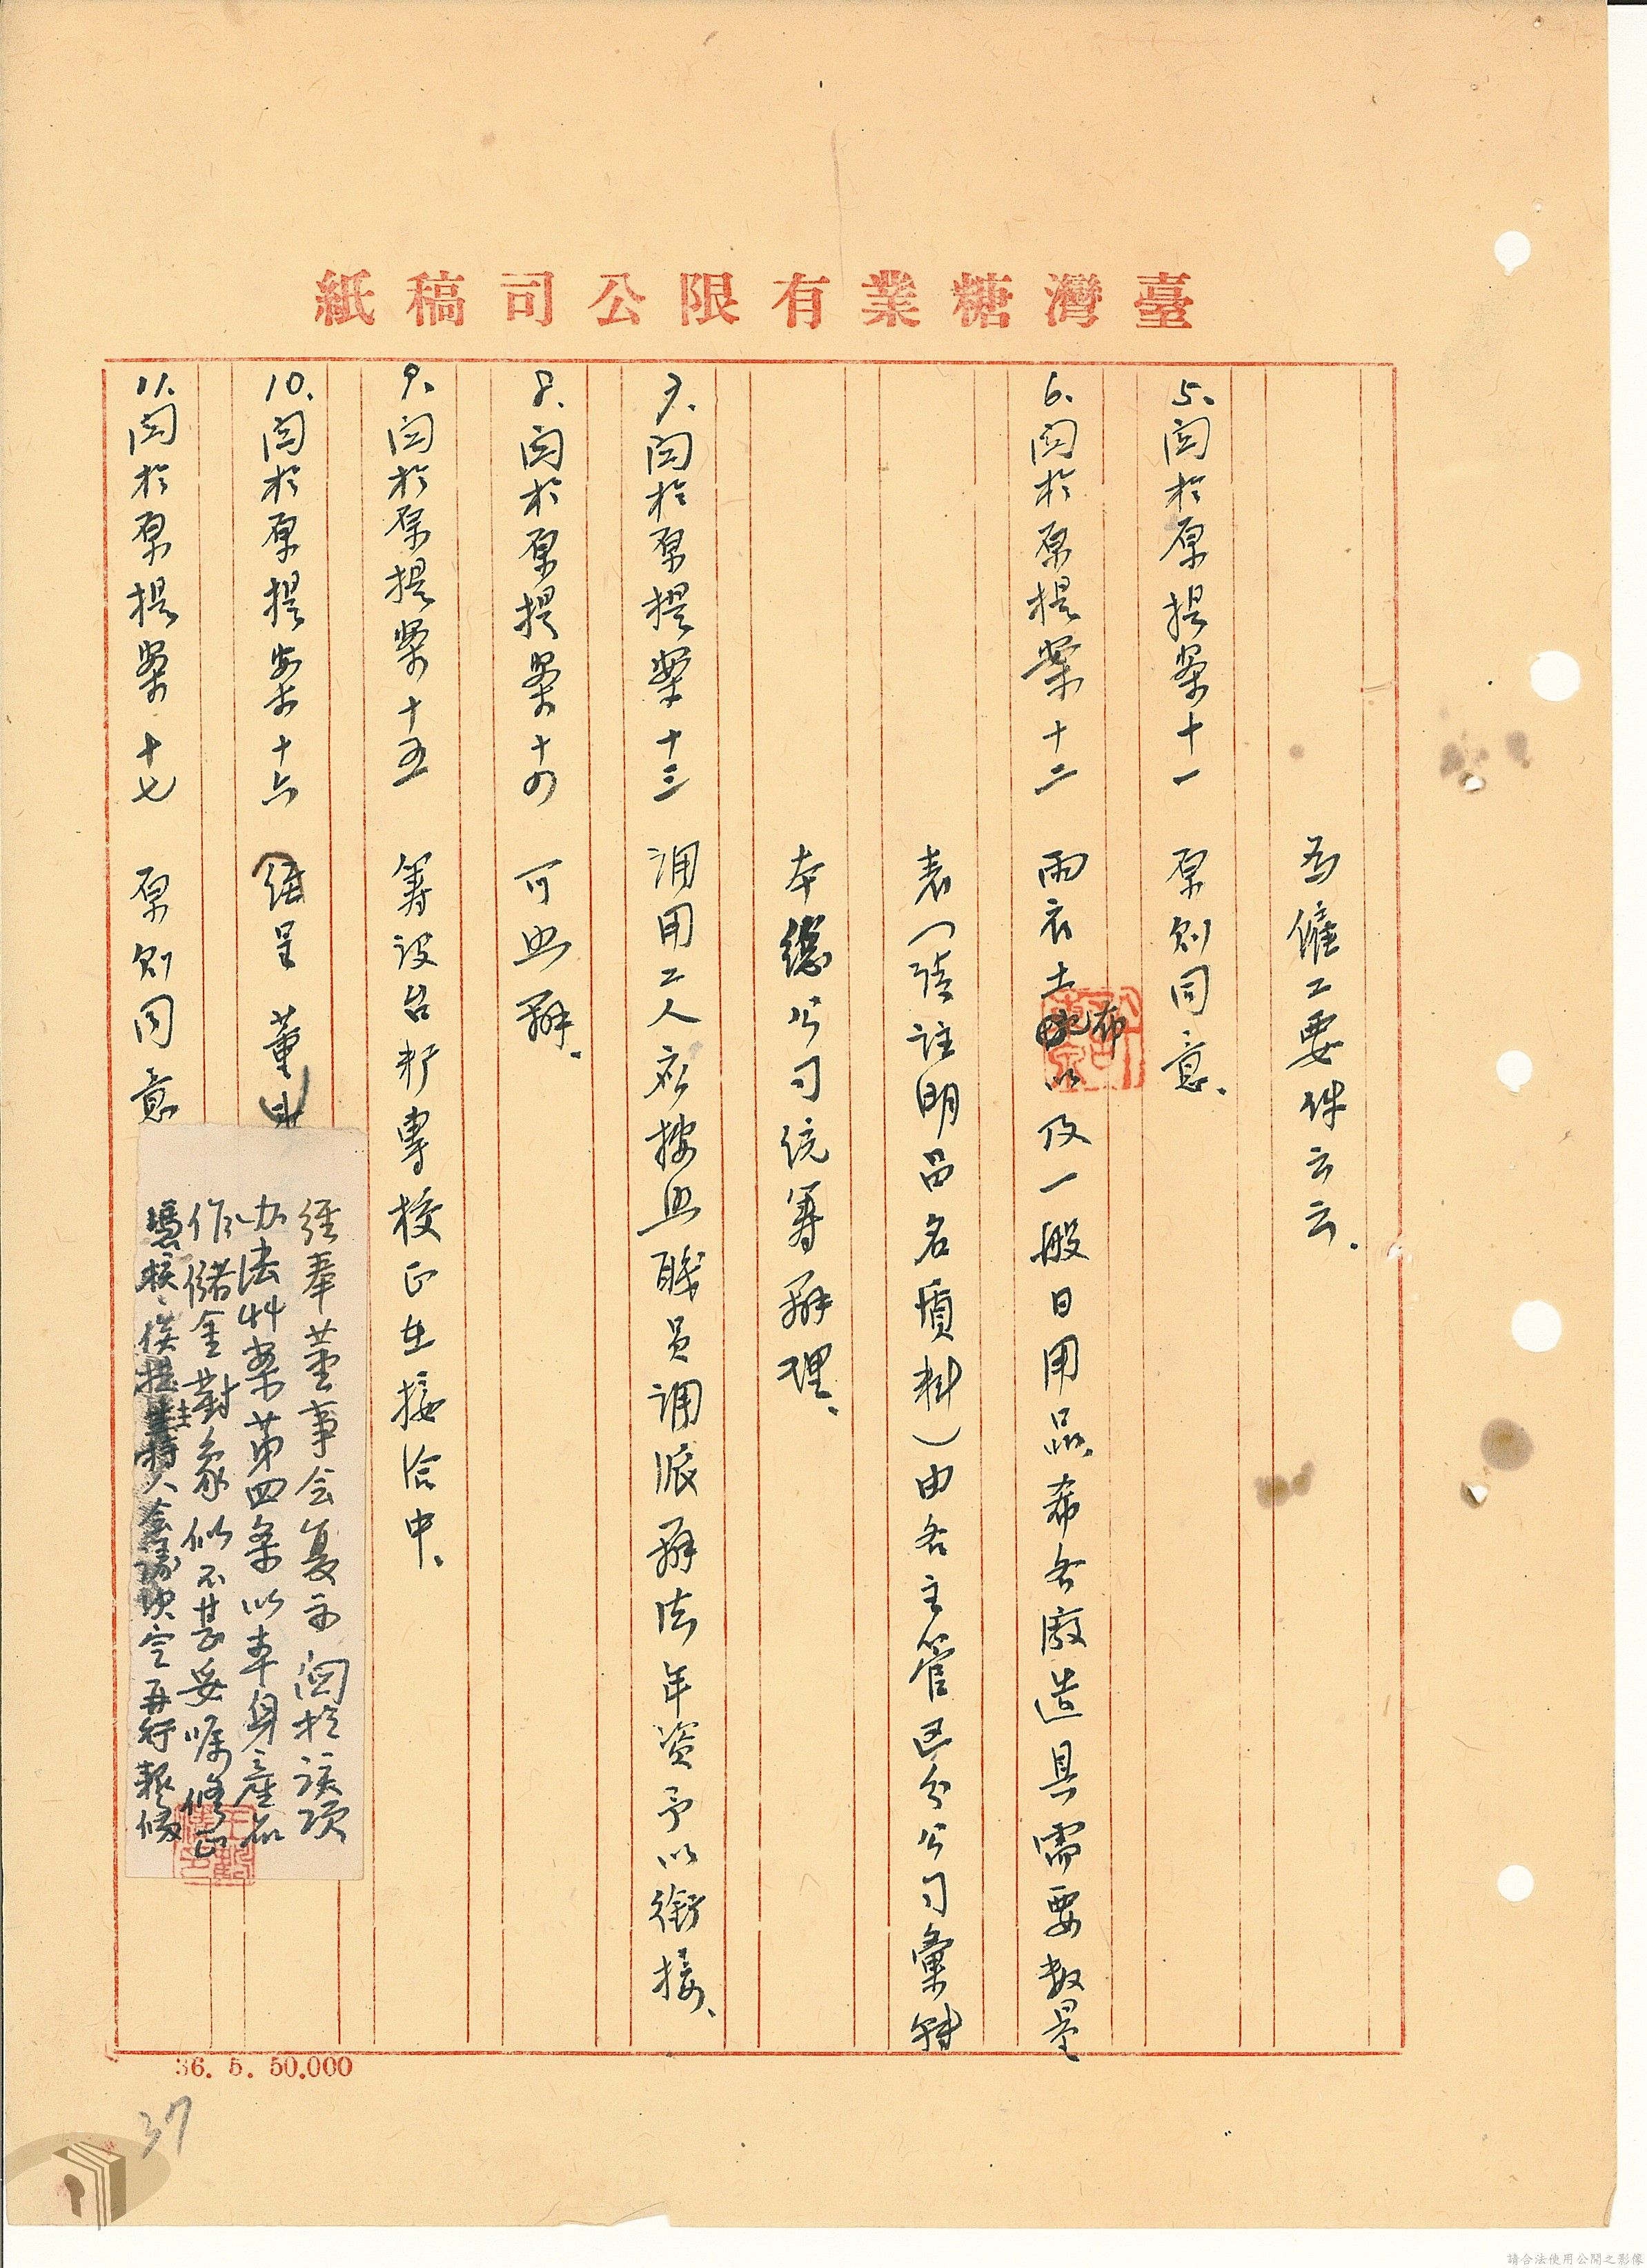 臺灣糖業有限公司稿紙
為僱工要件云云．
5.関於原提案十一　原則同意．
6.関於原提案十二　雨衣土布以及一般日用品希各廠造具需要数量
表（請註明品名質料）由各主管区分公司彙轉
本總公司统籌辦理．
7.関於原提案十三　調用工人应按照職員調派辦法年资予以銜接．
8.関於原提案十四　可照辦．
9.関於原提案十五　籌設台新專校正在接洽中．
10.関於原提案十六　經呈　董
11.関於原提案十七　原則同意
經奉董事会复示関於該項
办法草案第四条以車身產品
作儲金對象似不甚妥嘱修正
憑核俟提主持人會議決定再行報俻
36. 5. 50.000
37
請合法使用公開之影像